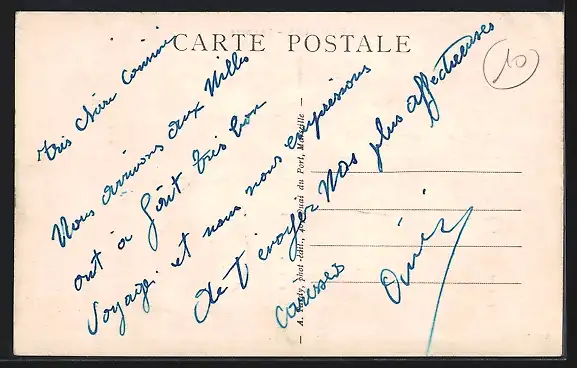 CARTE POSTALE
10
très chère Cousine
Nous arrivons aux Milles
ont a fait très bon
voyage et nous nous empressons
de T'envoyer nos plus affectueuses
caresses
A. Tardy, phot.-édit., Quai du Port, Marseille